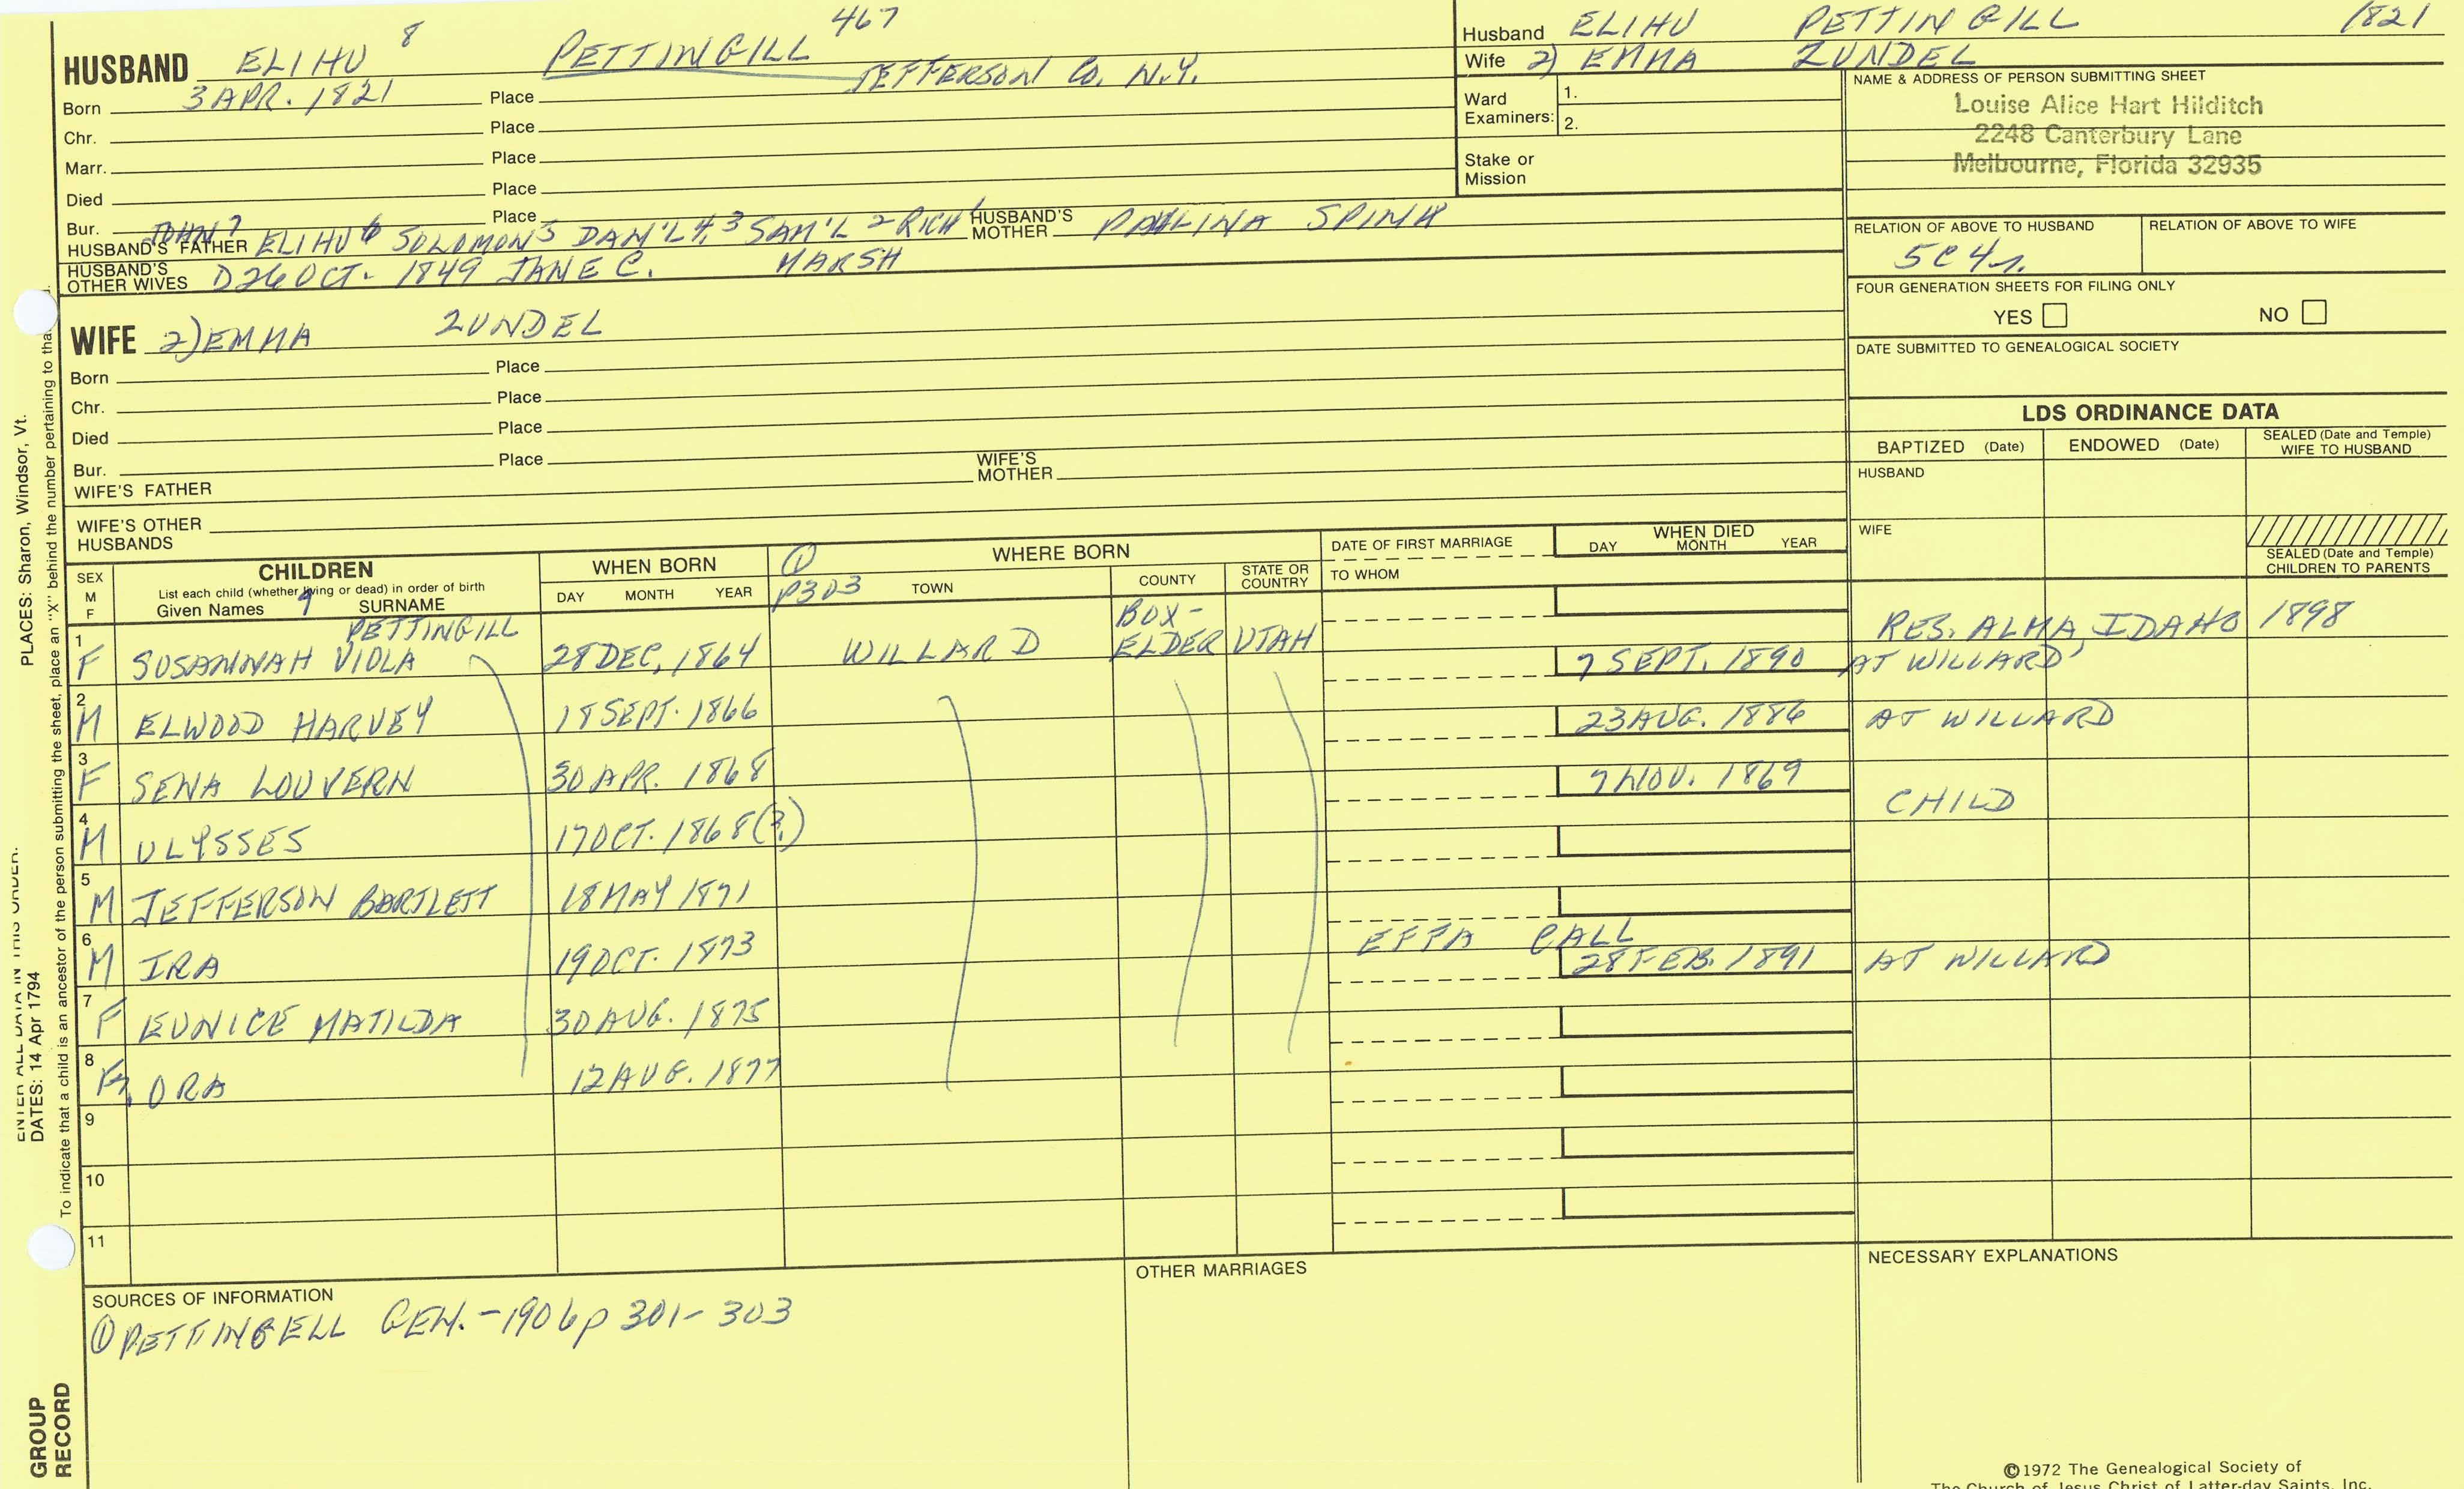 HUSBAND ELIHU 8 PETTINGILL 467
Born 3 APR. 1821 Place JEFFERSON Co. N.Y.
Chr. Place
Marr. Place
Died Place
Bur. Place
HUSBAND'S FATHER JOHN 7 ELIHU 6 SOLOMON 5 DAN'L 4, 3 SAM'L 2 RICH 1 HUSBAND'S MOTHER PAULINA SPINK
HUSBAND'S OTHER WIVES D26 OCT. 1849 JANE C. MARSH
WIFE 2) EMMA ZUNDEL
Born Place
Chr. Place
Died Place
Bur. Place
WIFE'S FATHER WIFE'S MOTHER
WIFE'S OTHER HUSBANDS
Husband ELIHU PETTINGILL 1821
Wife 2) EMMA ZUNDEL
Ward Examiners: 1.
2.
Stake or Mission
NAME & ADDRESS OF PERSON SUBMITTING SHEET
Louise Alice Hart Hilditch
2248 Canterbury Lane
Melbourne, Florida 32935
RELATION OF ABOVE TO HUSBAND RELATION OF ABOVE TO WIFE
5C4r.
FOUR GENERATION SHEETS FOR FILING ONLY
YES NO
DATE SUBMITTED TO GENEALOGICAL SOCIETY
LDS ORDINANCE DATA
BAPTIZED (Date) ENDOWED (Date) SEALED (Date and Temple) WIFE TO HUSBAND
HUSBAND
WIFE
SEALED (Date and Temple) CHILDREN TO PARENTS
SEX M F
CHILDREN
List each child (whether living or dead) in order of birth
Given Names 9 SURNAME
WHEN BORN
DAY MONTH YEAR
① P303 WHERE BORN
TOWN COUNTY STATE OR COUNTRY
DATE OF FIRST MARRIAGE
TO WHOM
WHEN DIED
DAY MONTH YEAR
PETTINGILL
1 F SUSANNAH VIOLA 28 DEC. 1864 WILLARD BOX-ELDER UTAH 7 SEPT. 1890 AT WILLARD
RES. ALMA, IDAHO 1898
2 M ELWOOD HARVEY 18 SEPT. 1866 23 AUG. 1886 AT WILLARD
3 F SENA LOUVERN 30 APR. 1868 7 NOV. 1869 CHILD
4 M ULYSSES 17 OCT. 1868(?)
5 M JEFFERSON BARTLETT 18 MAY 1871
6 M IRA 19 OCT. 1873 EFFA CALL 28 FEB. 1891 AT WILLARD
7 F EUNICE MATILDA 30 AUG. 1875
8 ORA 12 AUG. 1877
9
10
11
SOURCES OF INFORMATION
① PETTINGELL GEN. - 1906 p 301-303
OTHER MARRIAGES
NECESSARY EXPLANATIONS
©1972 The Genealogical Society of
The Church of Jesus Christ of Latter-day Saints, Inc.
ENTER ALL DATA IN THIS ORDER:
DATES: 14 Apr 1794
PLACES: Sharon, Windsor, Vt.
To indicate that a child is an ancestor of the person submitting the sheet, place an "X" behind the number pertaining to tha
GROUP RECORD